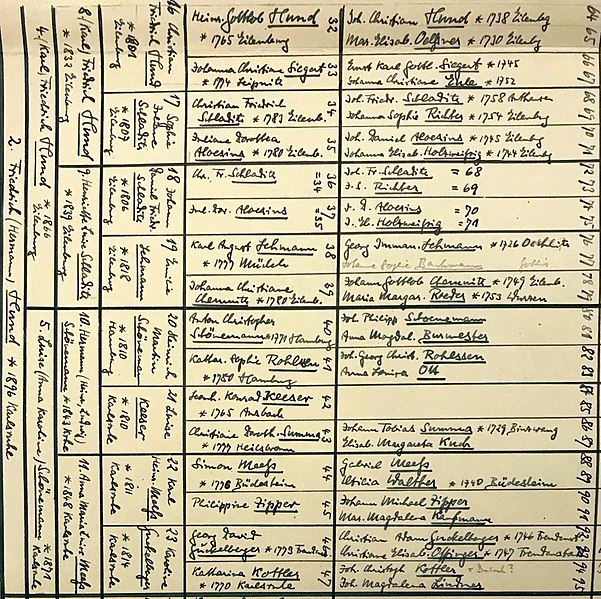 2. Friedrich (Hermann) Hund * 1896 Karlsruhe
4. Karl, Friedrich Hund
* 1866
Eilenburg
5. Luise (Anna Karoline) Schönemann
* 1871
Karlsruhe
8. (Karl) Friedrich Hund
* 1833 Eilenburg
9. Henriette Luise Schladitz
* 1839 Eilenburg
10. Hermann (Heinr. Ludwig)
Schönemann * 1843
11. Anna Maria Luise Meeß
* 1848 Karlsruhe
16 Christian
Friedrich Hund
* 1801
Eilenburg
17 Sophie
Schladitz
* 1807
Eilenburg
18 Johann
Daniel Friedr.
Schladitz
* 1806
Eilenburg
19
Lehmann
* 1818
Eilenburg
20 Heinrich
Martin
Schönemann
* 1810
Hamburg
21 Luise
Keeser
* 1810
Karlsruhe
22 Karl
Heinr. Meeß
* 1811
Karlsruhe
23 Karoline
* 1814
Karlsruhe
Heinr. Gottlob Hund
* 1765 Eilenburg
32
Johanna Christiane Siegert
* 1774
33
Christian Friedrich
Schladitz * 1783 Eilenb.
34
Juliane Dorothea
Aloesius * 1780 Eilenb.
35
Chr. Fr. Schladitz
= 34
36
Jul. Dor. Aloesius
= 35
37
Karl August Lehmann
* 1777
38
Johanna Christiane
Chemnitz * 1780 Eilenb.
39
Anton Christopher
Schönemann * 1770 Hamburg
40
Kathar. Sophie Rohlssen
* 1780 Hamburg
41
Leonh. Konrad Keeser
* 1765 Ansbach
42
Christiane Doroth. Summa
* 1777 Heilsbronn
43
Simon Meeß
* 1776 Büdesheim
44
Philippine Zipper
45
Georg David
* 1773
46
Katharina Kottler
* 1770 Karlsruhe
47
Joh. Christian Hund * 1738 Eilenbg
64
Mar. Elisab. Oelssner * 1730 Eilenbg
65
Ernst Karl Gottl. Siegert * 1745
66
Johanna Christiane * 1752
67
Joh. Friedr. Schladitz * 1758
68
Johanna Sophie Richter * 1754 Eilenbg
69
Joh. Daniel Aloesius * 1745 Eilenbg
70
Johanna Elisab. Holzweißig * 1744 Eilenbg
71
Joh. Fr. Schladitz = 68
72
J. S. Richter = 69
73
J. D. Aloesius = 70
74
J. El. Holzweißig = 71
75
Georg Imman. Lehmann * 1726
76
77
Johann Gottlob Chemnitz * 1749 Eilenb.
78
Maria Margar. Roeder * 1753 Wurzen
79
Joh. Philipp Schoenemann
80
Anna Magdal. Burmester
81
Joh. Georg Christ. Rohlssen
82
Anna Ott
83
84
85
Johann Tobias Summa * 1729
86
Elisab. Margareta Kuch
87
Gabriel Meeß
88
Walther * 1740 Büdesheim
89
Johann Michael Zipper
90
Mar. Magdalena Kaufmann
91
Christian Adam * 1746
92
Christiane Elisab. * 1747
93
Joh. Christoph Kottler
94
Joh. Magdalena Lindner
95